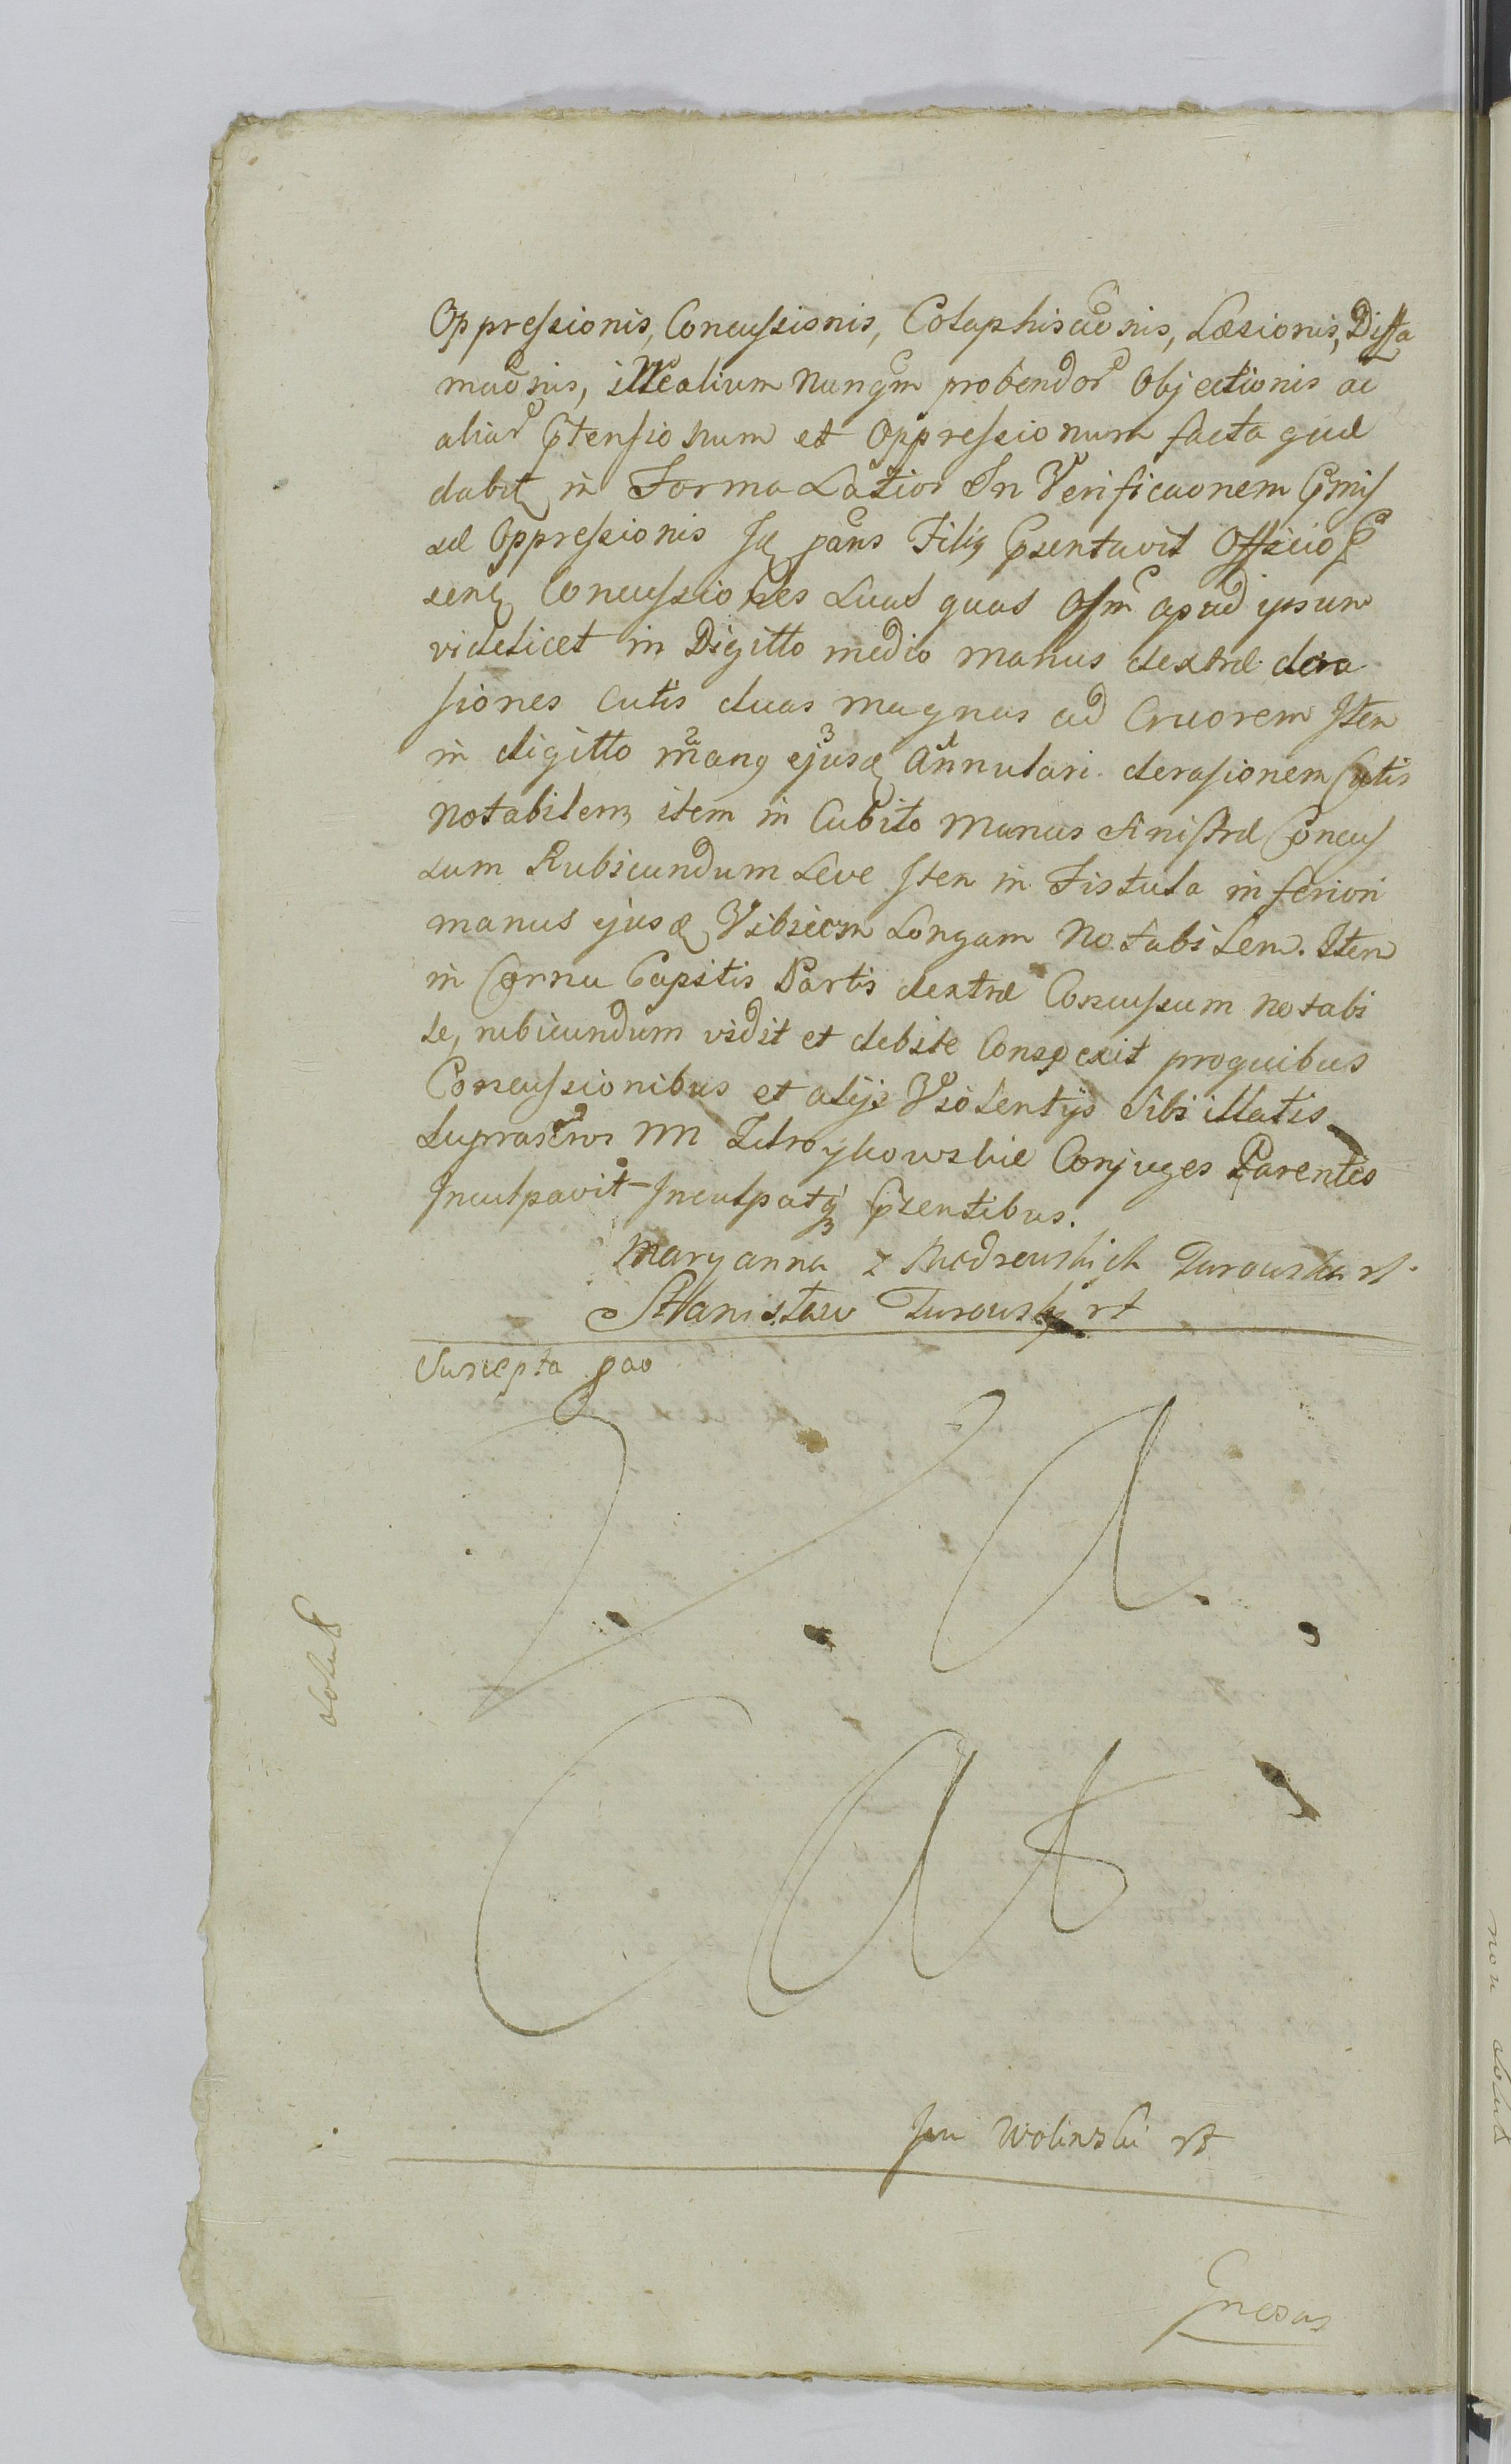 Oppressionis, Concussionis, Colaphisaōnis, Læsionis, Diffa
maōnis, illealium nunqm probendor Objectionis ac
aliar Ptensionum et Oppressionum facta quæ
dabit in Forma Latior In Verificaonem
Oppressionis pans Filiq Psentavit Officio P
senq Concussiones Suas quas Ofm apud ypsum
videlicet in Digitto medio manus dextræ dera
siones Cutis duas magnas ad Cruorem Iten
in digitto manq ejusd Annulari derasionem Cutis
notabilem, item in Cubito Manus Sinistræ Concus
sum Rubicundum Leve Iten in Fistula inferiori
manus ejusd Vibicem Longam Notabilem. Iten
in Cornu Capitis Partis dextræ Concussum notabi
le, rubicundum vidit et debite Conspexit proquibus
Concussionibus et alijs Violentijs Sibi illatis
Suprascros MM Conjuges Parentes
Inculpavit Inculpatq Psentibus.
Maryanna z Modrewskich Turowska rt
Stanisław Turowsky rt
Suscepta pao
A.
C A t
solut
Jan Wolinski rt
non solut